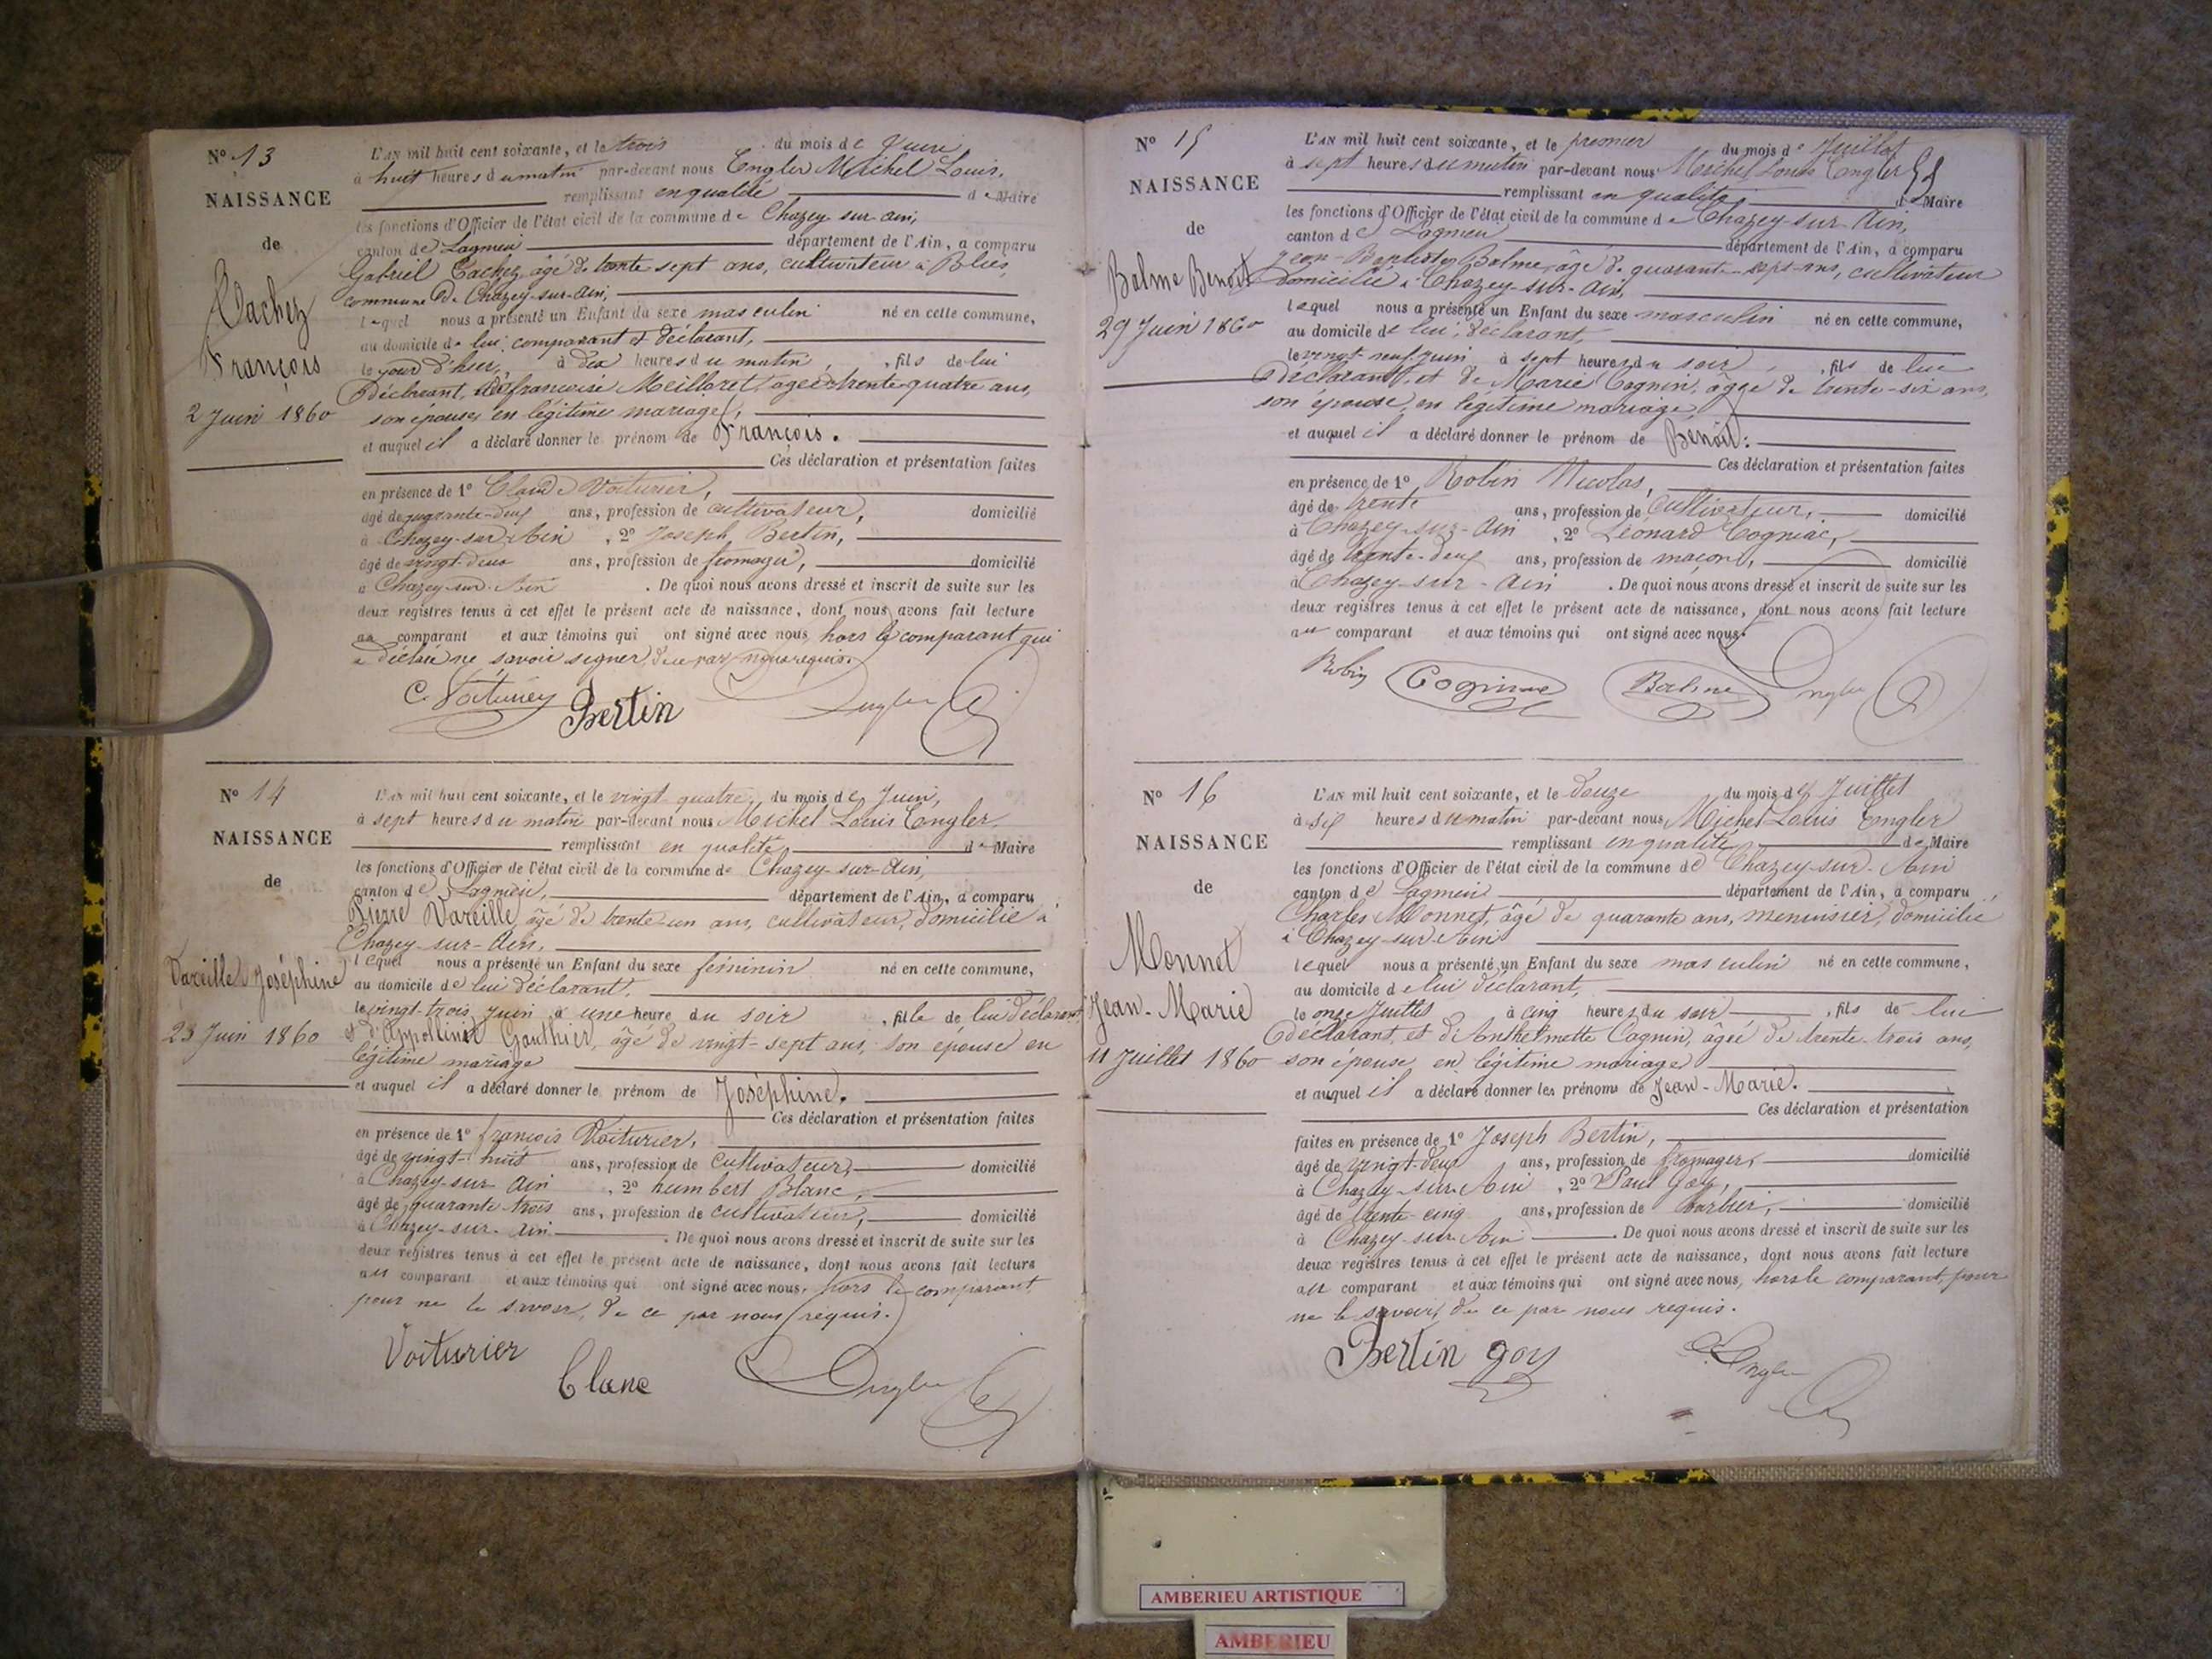 N° 13
NAISSANCE
de
Cachez
François
2 Juin 1860
L'AN mil huit cent soixante, et le trois du mois de Juin
à huit heures du matin par-devant nous Engler Michel Louis,
remplissant en qualité de Maire
les fonctions d'Officier de l'état civil de la commune de Chazey-sur-Ain,
canton de Lagnieu département de l'Ain, a comparu
Gabriel Cachez, âgé de trente sept ans, cultivateur à Blies,
commune de Chazey-sur-Ain,
lequel nous a présenté un Enfant du sexe masculin né en cette commune,
au domicile de lui comparant et déclarant,
le jour d'hier, à dix heures du matin, fils de lui
Déclarant, et de françoise Meilloret, agée de trente-quatre ans,
son épouse, en légitime mariage,
et auquel il a déclaré donner le prénom de François.
Ces déclaration et présentation faites
en présence de 1° Claude Voiturier,
âgé de quarante-deux ans, profession de cultivateur, domicilié
à Chazey-sur-Ain, 2° Joseph Bertin,
âgé de vingt-deux ans, profession de fromager, domicilié
à Chazey-sur-Ain. De quoi nous avons dressé et inscrit de suite sur les
deux registres tenus à cet effet le présent acte de naissance, dont nous avons fait lecture
au comparant et aux témoins qui ont signé avec nous, hors le comparant qui
a déclaré ne savoir signer, de ce par nous requis.
C. Voiturier Bertin Engler
N° 14
NAISSANCE
de
Vareille Joséphine
23 Juin 1860
L'AN mil huit cent soixante, et le vingt-quatre, du mois de Juin,
à sept heures du matin par-devant nous Michel Louis Engler
remplissant en qualité de Maire
les fonctions d'Officier de l'état civil de la commune de Chazey-sur-Ain,
canton de Lagnieu, département de l'Ain, a comparu
Pierre Vareille, âgé de trente-un ans, cultivateur, domicilié à
Chazey-sur-Ain,
lequel nous a présenté un Enfant du sexe féminin né en cette commune,
au domicile de lui déclarant,
le vingt-trois Juin à une heure du soir, fille de lui déclarant,
et d'Appolline Gauthier, âgé de vingt-sept ans, son épouse en
légitime mariage
et auquel il a déclaré donner le prénom de Joséphine.
Ces déclaration et présentation faites
en présence de 1° françois Voiturier,
âgé de vingt-huit ans, profession de cultivateur, domicilié
à Chazey-sur Ain, 2° humbert Blanc,
âgé de quarante-trois ans, profession de cultivateur, domicilié
à Chazey-sur-Ain. De quoi nous avons dressé et inscrit de suite sur les
deux registres tenus à cet effet le présent acte de naissance, dont nous avons fait lecture
au comparant et aux témoins qui ont signé avec nous, hors le comparant
pour ne le savoir, de ce par nous requis.
Voiturier Blanc Engler
N° 15
NAISSANCE
de
Balme Benoit
29 Juin 1860
L'AN mil huit cent soixante, et le premier du mois de Juillet
à sept heures du matin par-devant nous Michel Louis Engler
remplissant en qualité de Maire
les fonctions d'Officier de l'état civil de la commune de Chazey-sur-Ain,
canton de Lagnieu département de l'Ain, a comparu
Jean-Baptiste Balme, âgé de quarante-sept ans, cultivateur
domicilié à Chazey-sur-Ain,
lequel nous a présenté un Enfant du sexe masculin né en cette commune,
au domicile de lui, déclarant,
le vingt-neuf juin à sept heures du soir, fils de lui
déclarant, et de Marie Cognin, âgée de trente-six ans,
son épouse, en légitime mariage,
et auquel il a déclaré donner le prénom de Benoit.
Ces déclaration et présentation faites
en présence de 1° Robin Nicolas,
âgé de trente ans, profession de cultivateur, domicilié
à Chazey-sur-Ain, 2° Léonard Cogniac,
âgé de trente-deux ans, profession de maçon, domicilié
à Chazey-sur-Ain. De quoi nous avons dressé et inscrit de suite sur les
deux registres tenus à cet effet le présent acte de naissance, dont nous avons fait lecture
au comparant et aux témoins qui ont signé avec nous.
Robin Balme Engler
N° 16
NAISSANCE
de
Monnet
Jean-Marie
11 Juillet 1860
L'AN mil huit cent soixante, et le douze du mois de Juillet
à six heures du matin par-devant nous Michel Louis Engler
remplissant en qualité de Maire
les fonctions d'Officier de l'état civil de la commune de Chazey-sur-Ain
canton de Lagnieu département de l'Ain, a comparu
Charles Monnet, âgé de quarante ans, menuisier, domicilié
à Chazey-sur-Ain
lequel nous a présenté un Enfant du sexe masculin né en cette commune,
au domicile de lui déclarant,
le onze Juillet à cinq heures du soir, fils de lui
déclarant, et de Anthelmette Cognin, âgée de trente-trois ans,
son épouse en légitime mariage
et auquel il a déclaré donner les prénoms de Jean-Marie.
Ces déclaration et présentation
faites en présence de 1° Joseph Bertin,
âgé de vingt-deux ans, profession de fromager, domicilié
à Chazey-sur-Ain, 2° Paul Goy,
âgé de trente-cinq ans, profession de barbier, domicilié
à Chazey-sur-Ain. De quoi nous avons dressé et inscrit de suite sur les
deux registres tenus à cet effet le présent acte de naissance, dont nous avons fait lecture
au comparant et aux témoins qui ont signé avec nous, hors le comparant, pour
ne le savoir, de ce par nous requis.
Bertin goy Engler
AMBERIEU ARTISTIQUE
AMBERIEU